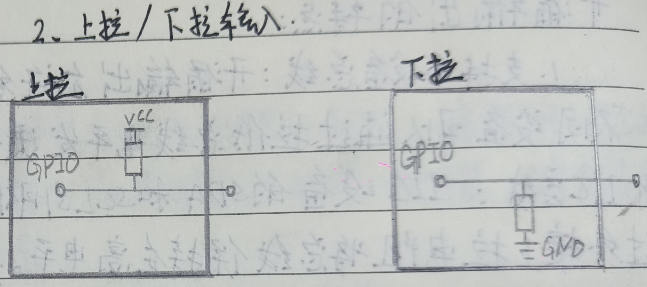 2、上拉/下拉输入.
上拉
下拉
VCC
GPIO
GPIO
GND